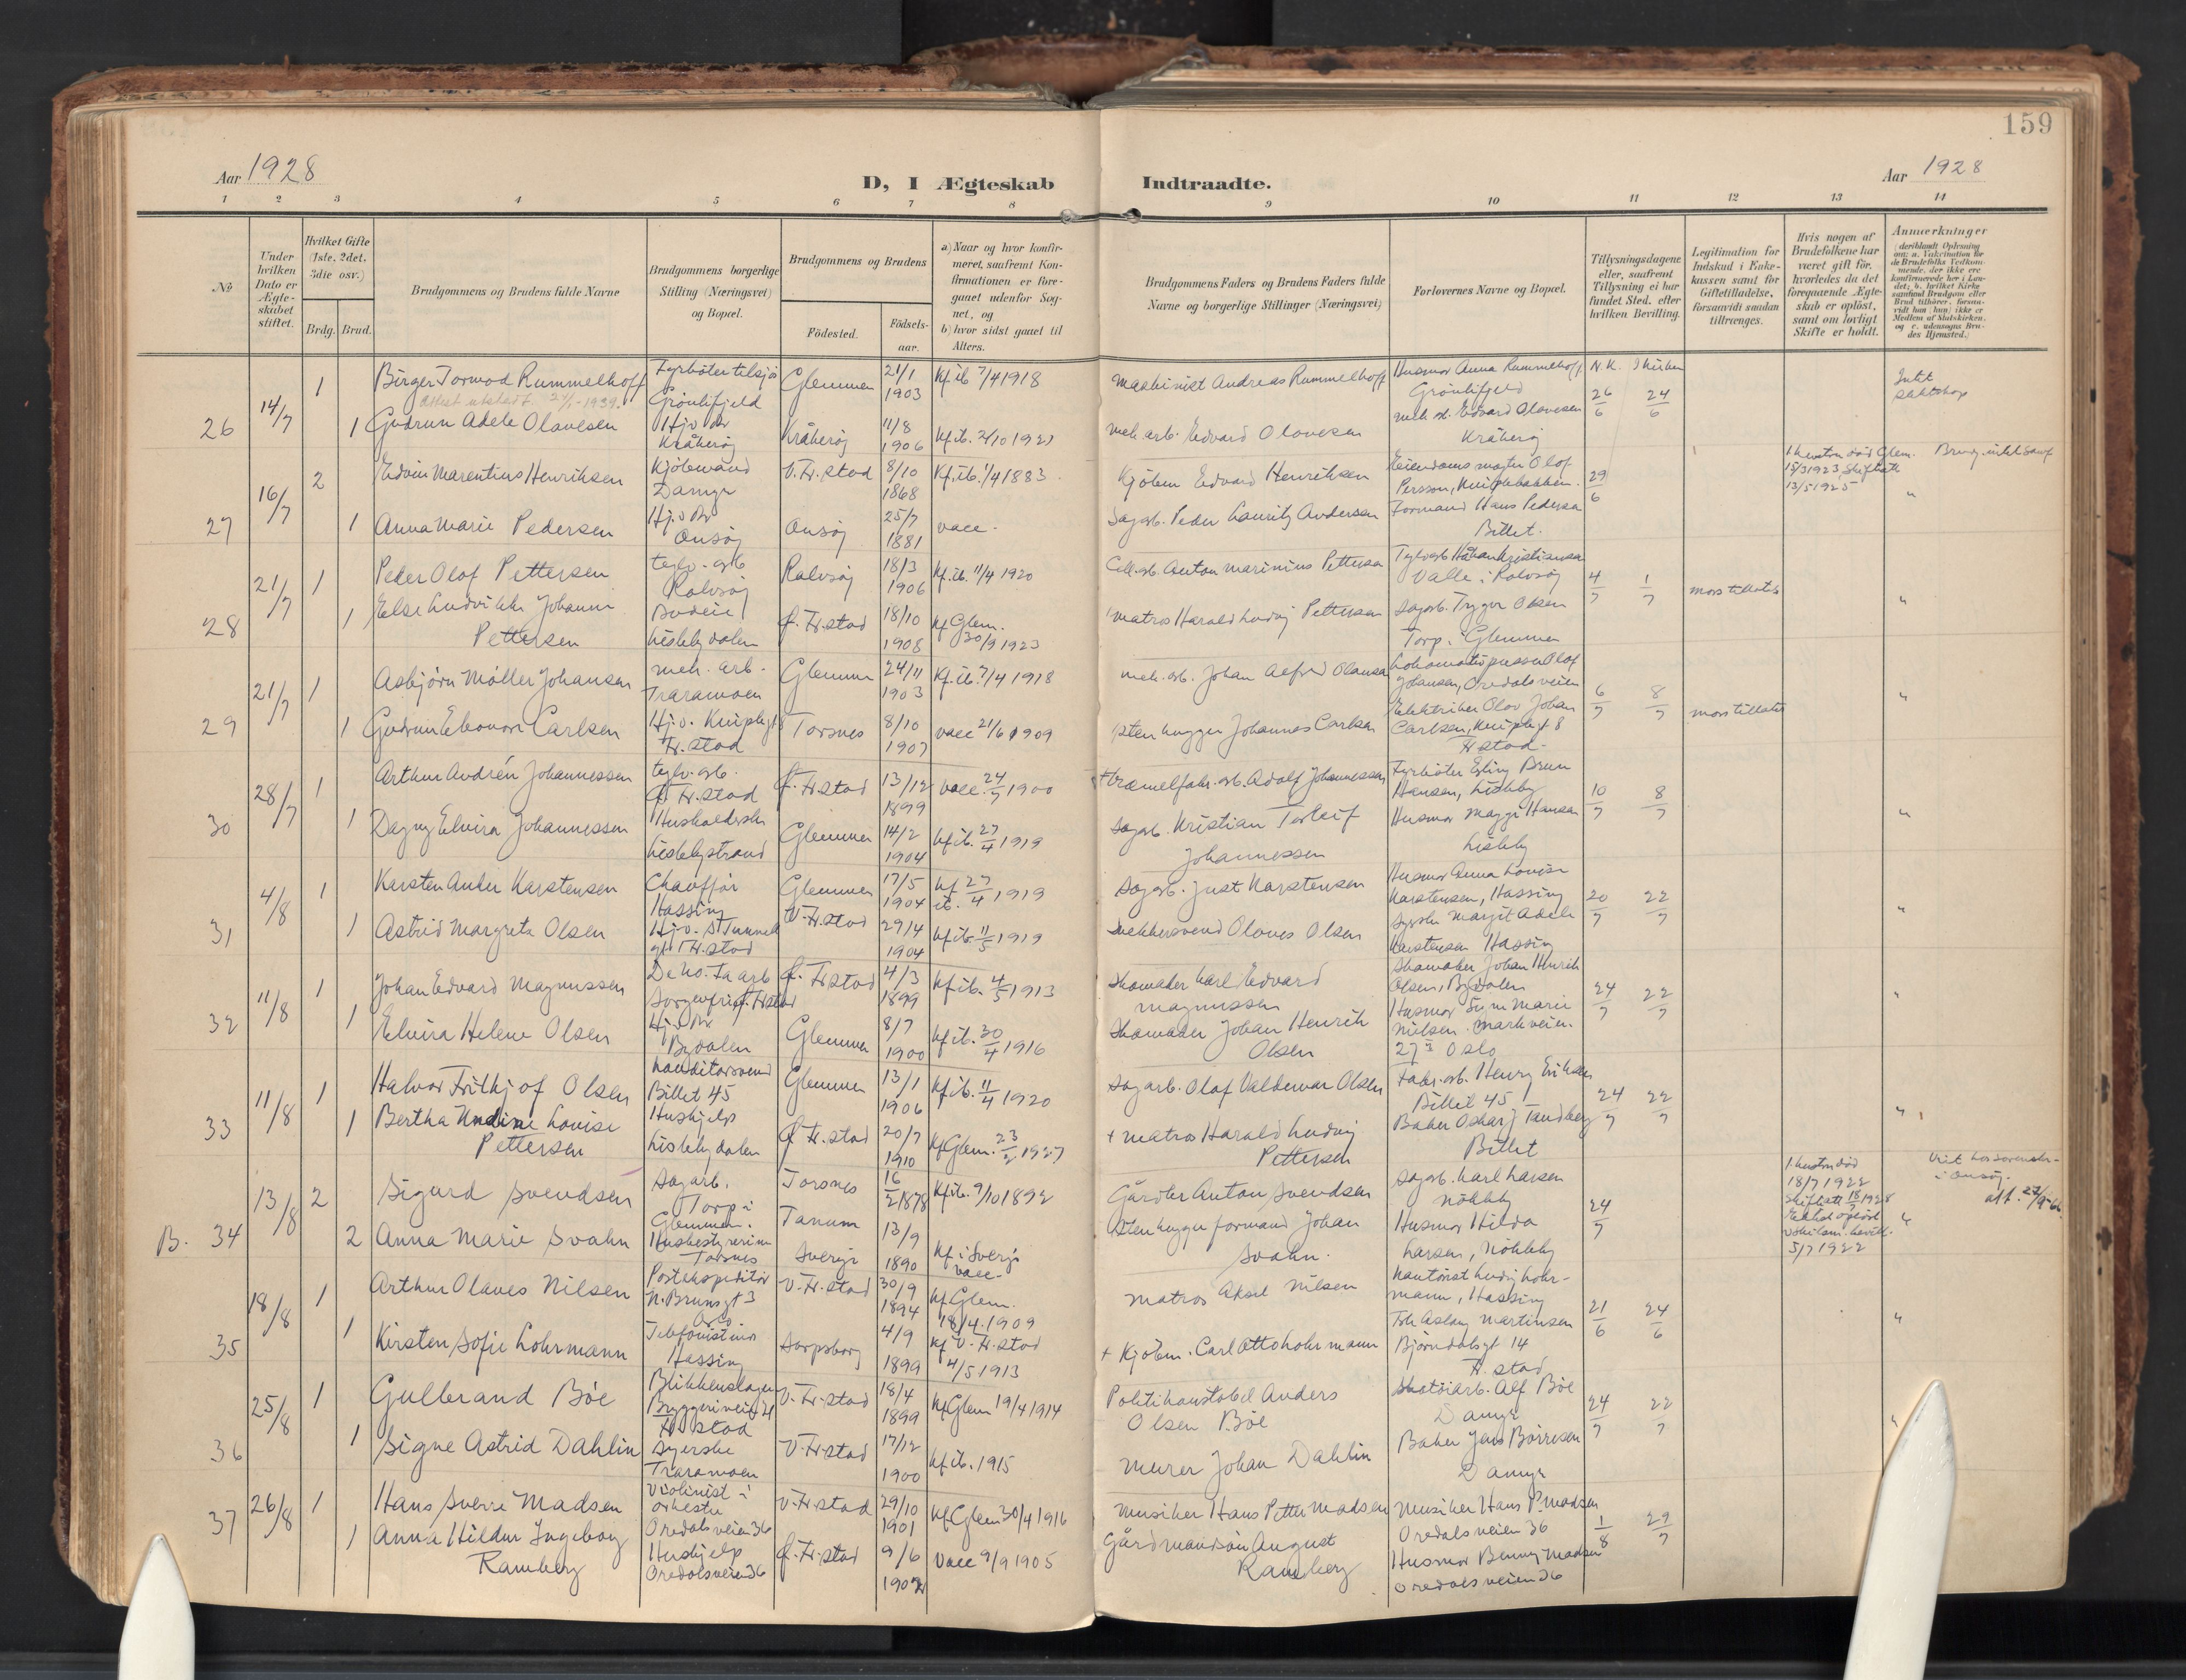 159
Aar 1928
D, I Ægteskab
Indtraadte.
Aar 1928
1 2 3 4 5 6 7 8 9 10 11 12 13 14
No
Under hvilken Dato er Ægteskabet stiftet.
Hvilket Gifte (1ste, 2det, 3die osv.)
Brdg. Brud.
Brudgommens og Brudens fulde Navne
Brudgommens borgerlige Stilling (Næringsvei) og Bopæl.
Brudgommens og Brudens
Födested.
Födsels-aar.
a) Naar og hvor konfirmeret, saafremt Konfirmationen er foregaaet udenfor Sognet, og
b) hvor sidst gaaet til Alters.
Brudgommens Faders og Brudens Faders fulde Navne og borgerlige Stillinger (Næringsvei)
Forlovernes Navne og Bopæl.
Tillysningsdagene eller, saafremt Tillysning ei har fundet Sted, efter hvilken Bevilling.
Legitimation for Indskud i Enkekassen samt for Giftetilladelse, forsaavidt saadan tiltrænges.
Hvis nogen af Brudefolkene har været gift för, hvorledes da det foregaaende Ægteskab er oplöst, samt om lovligt Skifte er holdt.
Anmærkninger
26 14/7 1 Birger Tormod Rummelhoff Fyrböter tilsjös Grönlifjeld Glemmen 21/1 1903 Kf. ib 7/4 1918 Maskinist Andreas Rummelhoff Husmor Anna Rummelhoff Grönlifjeld N.K. I kirken 26/6 24/6 Intet slektskap
Attest utstedt 1939.
1 Gudrun Adele Olavesen Hj.v. dr Kråkeröj Kråkeröj 11/8 1906 Kf. ib. 2/10 1921 mek. arb. Edvard Olavesen mek. st. Edvard Olavesen Kråkeröj
27 16/7 2 Edvin Marentius Henriksen Kjöbmand Damyr V. Fr.stad 8/10 1868 Kf. ib. 1/4 1883 Kjöbm Edvard Henriksen Eiendomsmegler Olof Persson, Kniplebakken 29/6
1 hustru död Glem. 15/3 1923, skifteatt. 13/5 1925
1 Anna Marie Pedersen Hj.v. dr Onsöj Onsöj 25/7 1881 vacc. Sagarb. Peder Lauritz Andersen Formand Hans Pedersen Billet.
28 21/7 1 Peder Olof Pettersen teglv. arb Rolvsöj Rolvsöj 18/3 1906 Kf. ib. 11/4 1920 Cell. arb. Anton Marinius Pettersen Teglv.arb Håkon Kristiansen Valle i Rolvsöj 4/7 1/7 mors tillatelse "
1 Else Ludvikke Johanne Pettersen Budeie Lislebydalen G. Fr.stad 18/10 1908 Kf Glem. 30/9 1923 matros Harald Ludvig Pettersen Sagarb. Trygve Olsen Torp i Glemmen
29 21/7 1 Asbjörn Möller Johansen mek. arb. Traramoen Glemmen 24/11 1903 Kf. ib. 7/4 1918 mek. arb. Johan Alfred Olausen Lokomotivpusser Olof Johansen, Oredalsveien 6/7 8/7 mors tillatelse "
1 Gudrun Eleonore Carlsen Hj.v. Kniplegt 8 Fr.stad Torsnes 8/10 1907 vacc 21/6 1909 Stenhugger Johannes Carlsen Elektriker Olov Johan Carlsen, Kniplegt 8 Fr stad.
30 28/7 1 Arthur Andrén Johannessen teglv. arb. G. Fr.stad G. Fr.stad 13/12 1899 vacc. 24/7 1900 + Tramelfabr. arb. Adolf Johannessen Fyrböter Erling Brun Hansen, Lisleby 10/7 8/7
1 Dagny Elvira Johannessen Husholderske Lislebystrand Glemmen 14/2 1904 Kf. ib. 27/4 1919 Sagarb. Kristian Torleif Johannessen Husmor Maggi Hansen Lisleby "
31 4/8 1 Karsten Anker Karstensen Chaufför Hassing Glemmen 17/5 1904 Kf. ib. 27/4 1919 Sagarb. Just Karstensen Husmor Anna Louise Karstensen, Hassing 20/7 22/7 "
1 Astrid Margrete Olsen Hj.v. St Tunnel gt 1 Fr.stad V. Fr.stad 29/4 1904 Kf. ib. 11/5 1919 Snekkersvend Olaves Olsen Syerske Margit Adele Karstensen Hassing
32 11/8 1 Johan Edvard Magnussen De No. Fa arb Sorgenfri G. Fr.stad G. Fr.stad 4/3 1899 Kf. ib. 4/5 1913 Skomaker Karl Edvard Magnussen Skomaker Johan Henrik Olsen, Bydalen 24/7 22/7 "
1 Elvira Helene Olsen Hj.v. dr Bydalen Glemmen 8/7 1900 Kf. ib. 30/4 1916 Skomaker Johan Henrik Olsen Husmor Signe Marie Nielsen. Markveien. 27 3 Oslo
33 11/8 1 Halvor Frithjof Olsen Konditorsvend Billet 45 Glemmen 13/1 1906 Kf. ib. 11/4 1920 Sagarb. Olof Valdemar Olsen Fabr. arb. Henry Eriksen Billet 45 24/7 22/7
1 Bertha Undine Louise Pettersen Hushjelp Lislebydalen G Fr.stad 20/7 1910 Kf Glem. 23/2 1927 + matros Harald Ludvig Pettersen Baker Oskar J Tandberg Billet "
B. 34 13/8 2 Sigurd Svendsen Sagarb. Torp i Glemmen. Torsnes 16/2 1878 Kf. ib. 9/10 1892 Gårdbr Anton Svendsen Sagarb. Karl Larsen Nökleby 24/7
1 hustru död 18/7 1922 Skifteatt 18/7 1928
2 Anna Marie Svahn Husbestyrerinne Torsnes Tanum Sverige 13/9 1890 Kf. i Sverige vacc. Stenhugger formand Johan Svahn. Husmor Hilda Larsen, Nökleby
35 18/8 1 Arthur Olaves Nilsen Postekspeditör N. Brunsgt 3 Oslo V. Fr.stad 30/9 1894 Kf Glem. 18/4 1909 Matros Aksel Nilsen Kontorist Ludvig Lohrmann, Hassing 21/6 24/6
1 Kirsten Sofie Lohrmann Telefonistinne Hassing Sarpsborg 4/9 1899 Kf V. Fr.stad 4/5 1913 + Kjöbm. Carl Otto Lohrmann Frk Aslaug Martinsen Björndalsgt 14 Fr. stad "
36 25/8 1 Gulbrand Böe Blikkenslager Bryggeriveien 21 Fr. stad V. Fr.stad 18/4 1899 Kf Glem 19/4 1914 Politikonstabel Anders Olsen Böe Skotöiarb. Alf Böe Damyr 24/7 22/7
1 Signe Astrid Dahlin Syerske Traramoen V. Fr.stad 17/12 1900 Kf ib. 1915 Murer Johan Dahlin Baker Jens Börresen Damyr
37 26/8 1 Hans Sverre Madsen Violinist i orkester Oredalsveien 36 V. Fr.stad 29/10 1901 Kf Glem 30/4 1916 Musiker Hans Petter Madsen Musiker Hans P Madsen Oredalsveien 36 1/8 29/7
1 Anna Hildur Ingeborg Ramberg Hushjelp Oredalsveien 36 G. Fr.stad 9/6 vacc 9/9 1905 Gårdmandsön August Ramberg Husmor Benny Madsen Oredalsveien 36